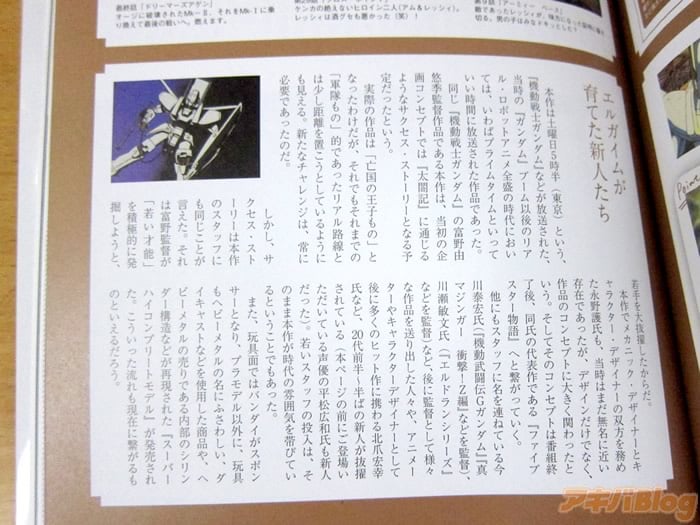 最終話「ドリーマーズアゲン」
オージに破壊されたMk-Ⅱ、それをMk-Ⅰに乗
り換えて最後の戦いへ。燃えます。
ケンカの絶えないヒロイン二人(アム&レッシィ)。
レッシィは酒グセも悪かった(笑)!
エルガイムが
育てた新人たち
本作は土曜日5時半(東京)という、
『機動戦士ガンダム』などが放送された、
当時の「ガンダム」ブーム以後のリア
ル・ロボットアニメ全盛の時代におい
ては、いわばプライムタイムといって
いい時間に放送された作品であった。
同じ『機動戦士ガンダム』の富野由
悠季監督作品である本作は、当初の企
画コンセプトでは『太閤記』に通じる
ようなサクセス・ストーリーとなる予
定だったという。
実際の作品は「亡国の王子もの」と
なったわけだが、それでもそれまでの
「軍隊もの」的であったリアル路線と
は少し距離を置こうとしているように
も見える。新たなチャレンジは、常に
必要であったのだ。
しかし、サ
クセス・スト
ーリーは本作
のスタッフに
も同じことが
言えた。それ
は富野監督が
「若い才能」
を積極的に発
掘しようと、
若手を大抜擢したからだ。
本作でメカニック・デザイナーとキ
ャラクター・デザイナーの双方を務め
た永野護氏も、当時はまだ無名に近い
存在であったが、デザインだけでなく、
作品のコンセプトに大きく関わったと
いう。そしてそのコンセプトは番組終
了後、同氏の代表作である『ファイブ
スター物語』へと繋がっていく。
他にもスタッフに名を連ねている今
川泰宏氏(『機動武闘伝Gガンダム』『真
マジンガー 衝撃!Z編』などを監督)、
川瀬敏文氏(『エルドランシリーズ』
などを監督)など、後に監督として様々
な作品を送り出した人々や、アニメー
ターやキャラクターデザイナーとして
後に多くのヒット作に携わる北爪宏幸
氏など、20代前半~半ばの新人が抜擢
されている(本ページの前にご登場い
ただいている声優の平松広和氏も新人
だった)。若いスタッフの投入は、そ
のまま本作が時代の雰囲気を帯びてい
るということでもあった。
また、玩具面ではバンダイがスポン
サーとなり、プラモデル以外に、玩具
もヘビーメタルの名にふさわしい、ダ
イキャストなどを使用した商品や、ヘ
ビーメタルの売りである内部のシリン
ダー構造などが再現された『スーパー
ハイコンプリートモデル』が発売され
た。こういった流れも現在に繋がるも
のといえるだろう。
アキバBlog